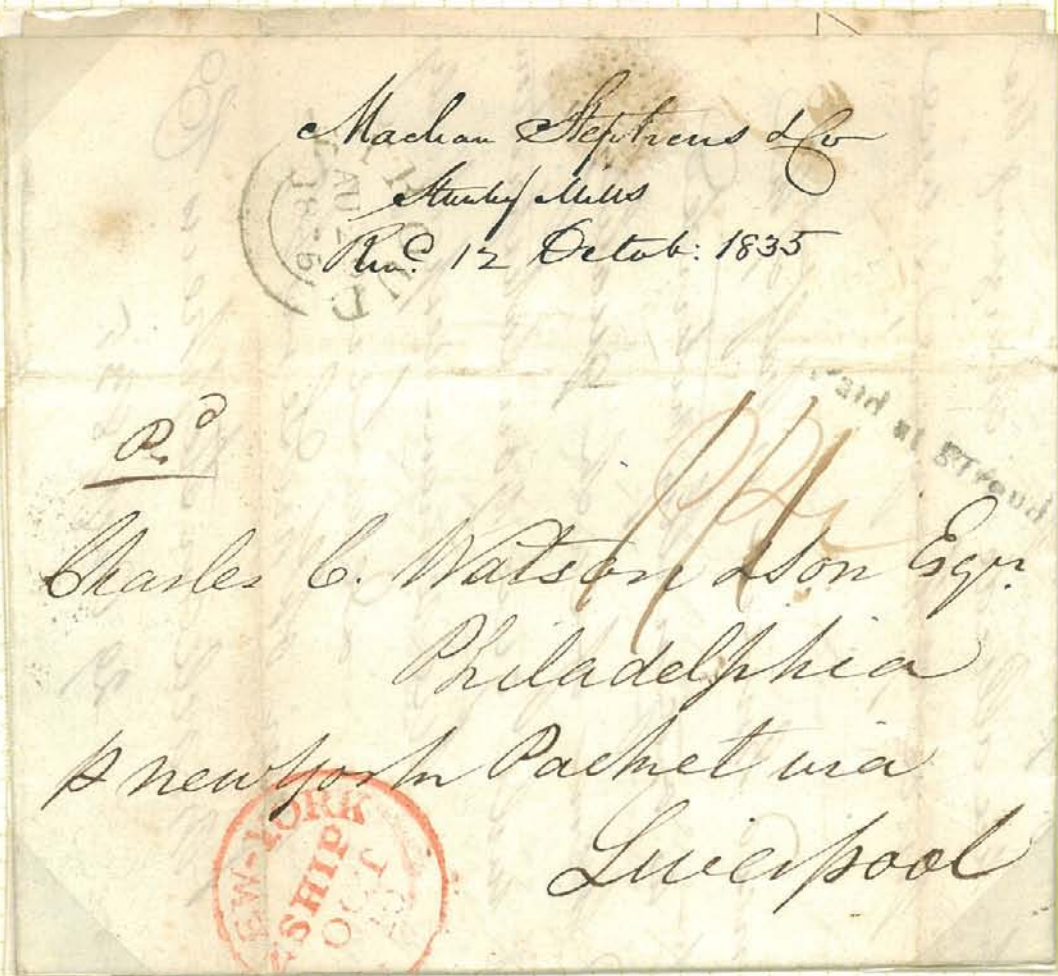 Maclean Stephens & Co
Stanley Mills
Recd. 12 Octob: 1835
STROUD
AU
Paid at Stroud
Pd
Charles C. Watson & Son Esqrs.
Philadelphia
P new york Packet via
Liverpool
NEW-YORK
SHIP
OCT